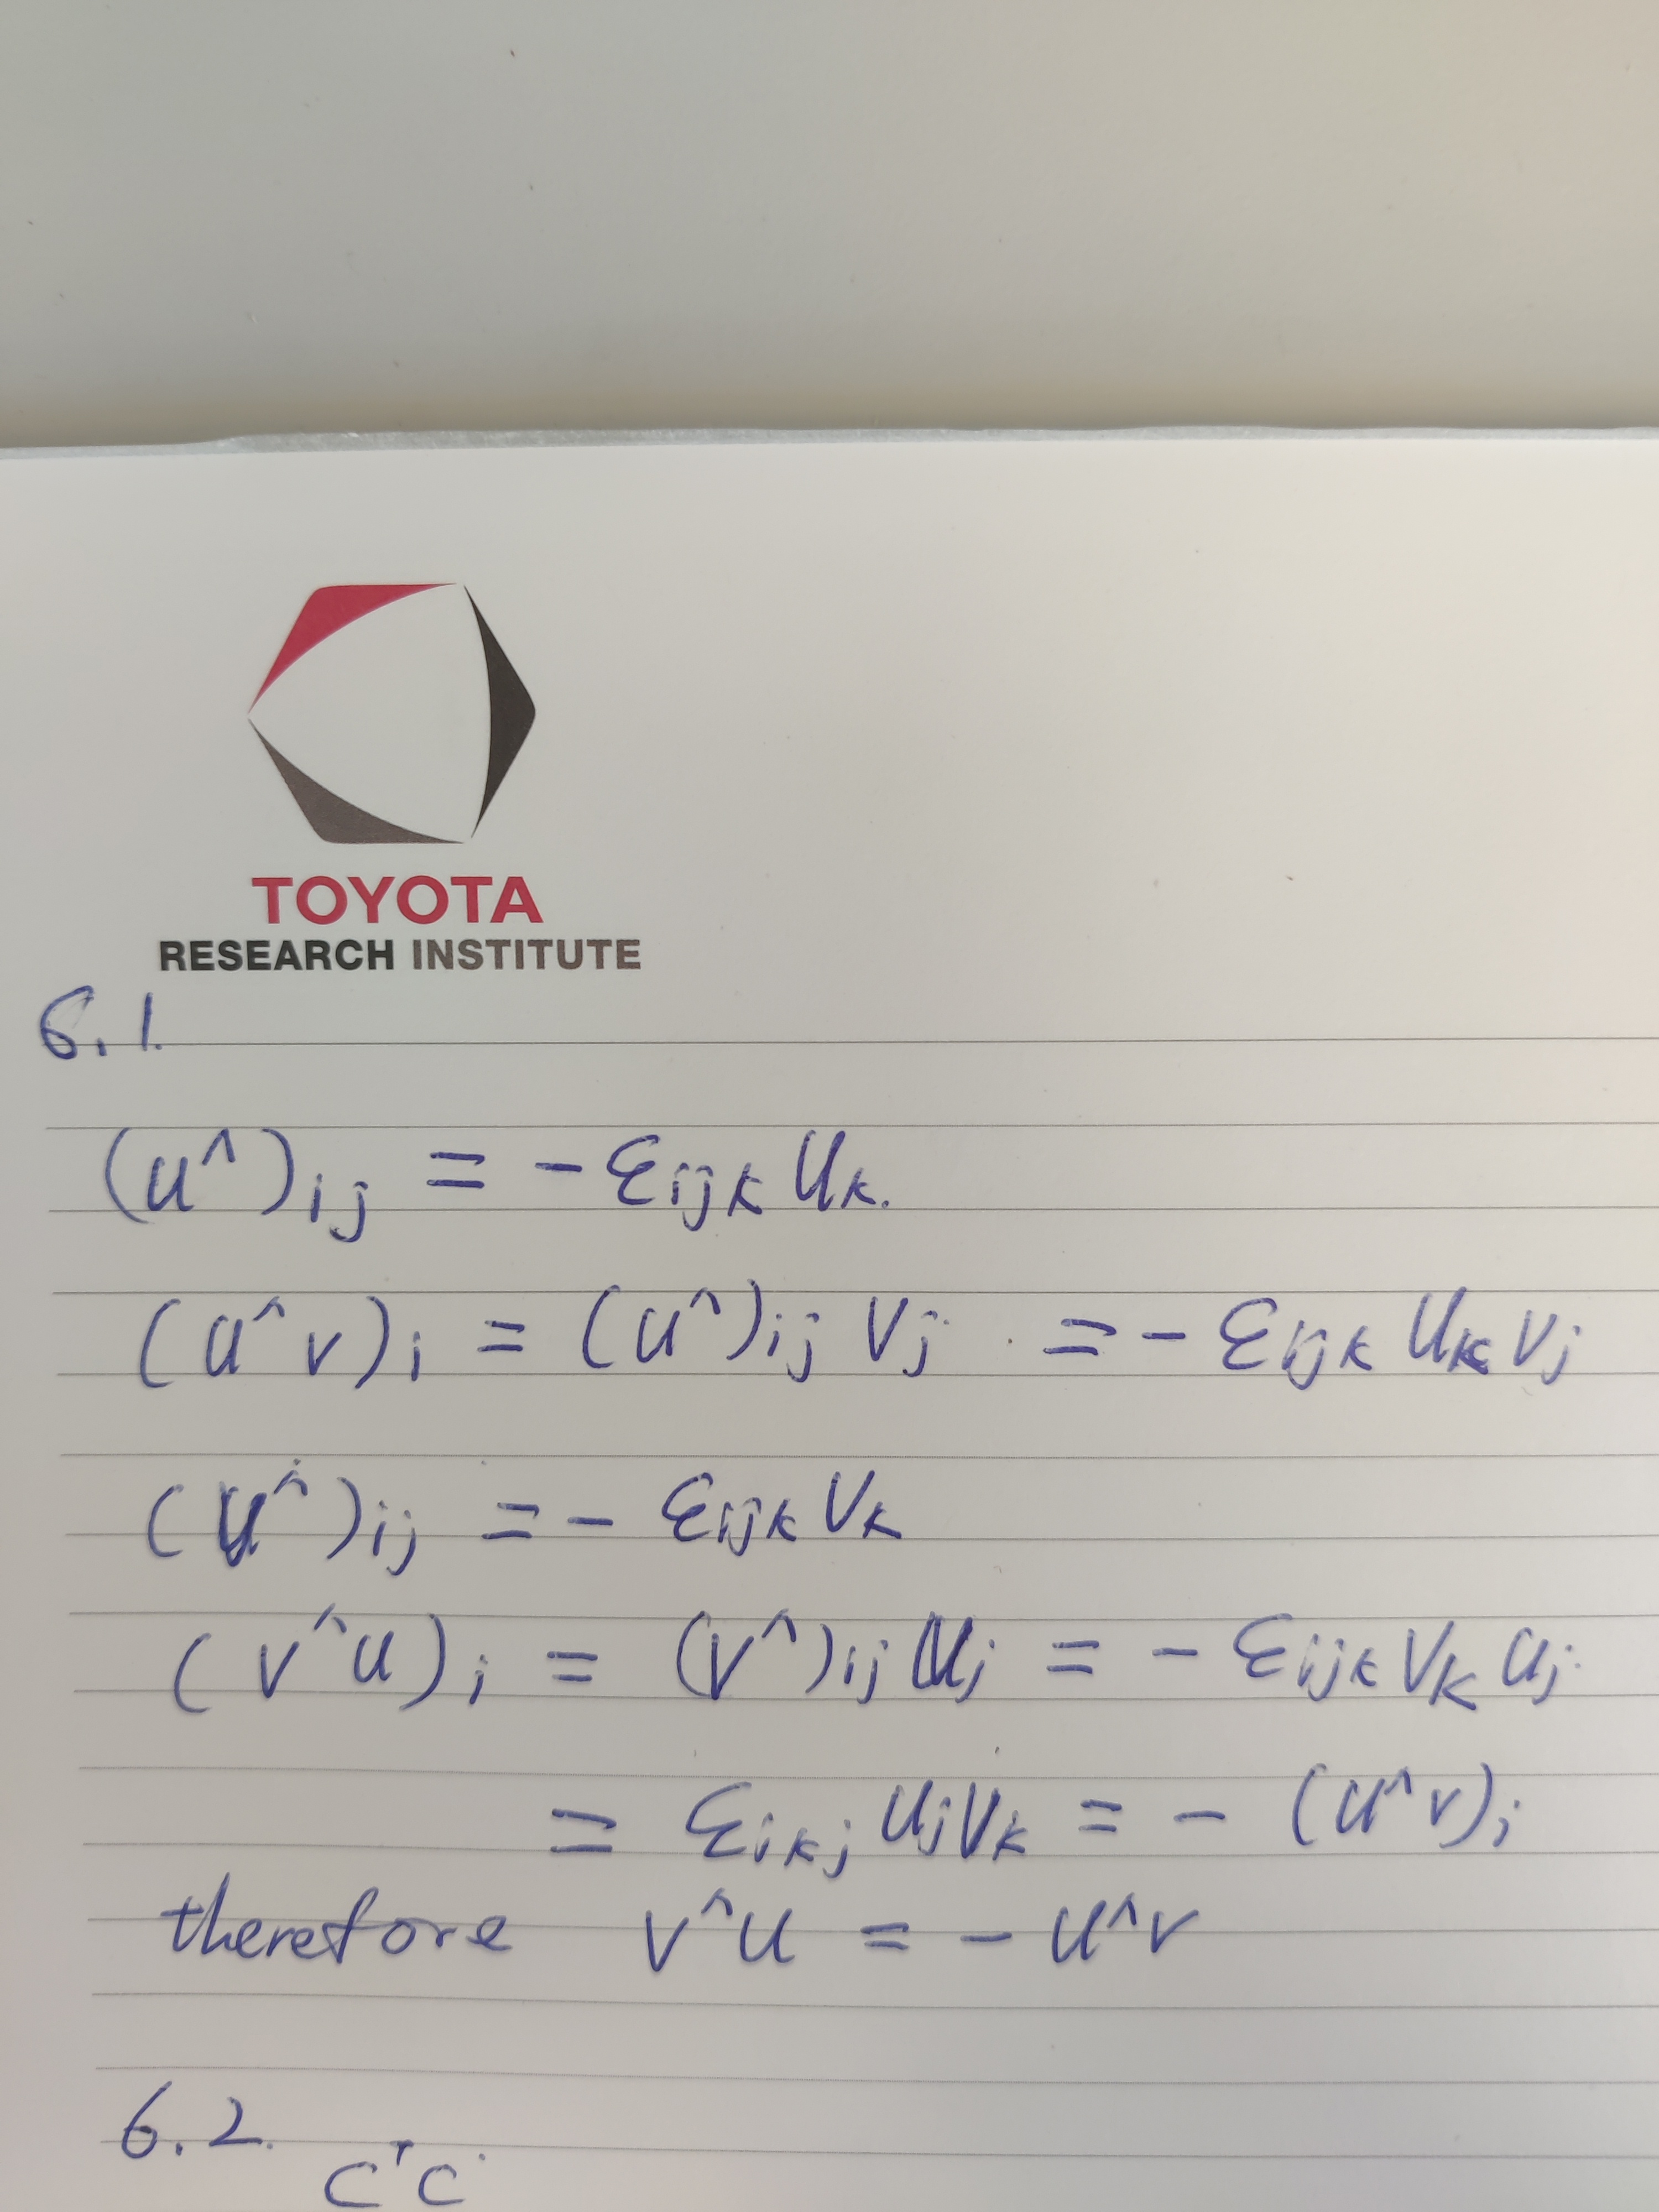 TOYOTA
RESEARCH INSTITUTE
6.1.
(u^)ij = - εijk uk.
(u^v)i = (u^)ij vj = - εijk uk vj
(v^)ij = - εijk vk
(v^u)i = (v^)ij uj = - εijk vk uj.
= εikj uj vk = - (u^v)i
therefore v^u = - u^v
6.2.
CᵀC